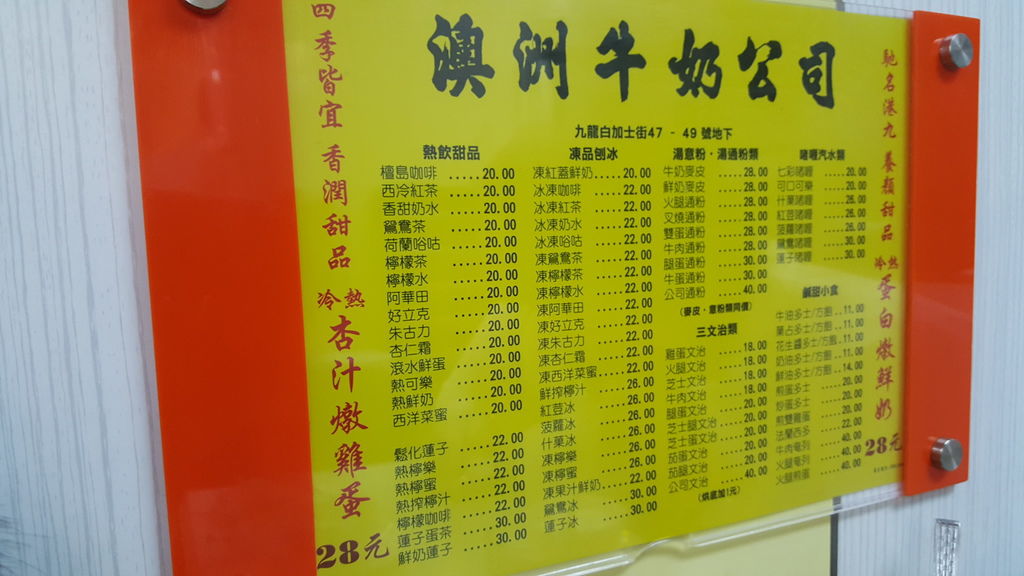 澳洲牛奶公司
九龍白加士街47 - 49 號地下
四季皆宜 香潤甜品
冷熱 杏汁燉雞蛋
28元
熱飲甜品
檀島咖啡 .....20.00
西冷紅茶 .....20.00
香甜奶水 .....20.00
鴛鴦茶 .....20.00
荷蘭哈咕 .....20.00
檸檬茶 .....20.00
檸檬水 .....20.00
阿華田 .....20.00
好立克 .....20.00
朱古力 .....20.00
杏仁霜 .....20.00
滾水鮮蛋 .....20.00
熱可樂 .....20.00
熱鮮奶 .....20.00
西洋菜蜜 .....20.00
鬆化蓮子 .....22.00
熱檸樂 .....22.00
熱檸蜜 .....22.00
熱搾檸汁 .....22.00
檸檬咖啡 .....22.00
蓮子蛋茶 .....30.00
鮮奶蓮子 .....30.00
凍品刨冰
凍紅蓋鮮奶 .....20.00
冰凍咖啡 .....22.00
冰凍紅茶 .....22.00
冰凍奶水 .....22.00
冰凍哈咕 .....22.00
凍鴛鴦茶 .....22.00
凍檸檬茶 .....22.00
凍檸檬水 .....22.00
凍阿華田 .....22.00
凍好立克 .....22.00
凍朱古力 .....22.00
凍杏仁霜 .....22.00
凍西洋菜蜜 .....22.00
鮮搾檸汁 .....26.00
紅荳冰 .....26.00
菠蘿冰 .....26.00
什菓冰 .....26.00
凍檸樂 .....26.00
凍檸蜜 .....26.00
凍果汁鮮奶 .....22.00
鴛鴦冰 .....30.00
蓮子冰 .....30.00
湯意粉・湯通粉類
牛奶麥皮 .....28.00
鮮奶麥皮 .....28.00
火腿通粉 .....28.00
叉燒通粉 .....28.00
雙蛋通粉 .....28.00
牛肉通粉 .....28.00
腿蛋通粉 .....30.00
牛蛋通粉 .....30.00
公司通粉 .....40.00
(麥皮・意粉類同價)
三文治類
雞蛋文治 .....18.00
火腿文治 .....18.00
芝士文治 .....18.00
牛肉文治 .....18.00
腿蛋文治 .....20.00
芝士腿文治 .....20.00
芝士蛋文治 .....20.00
茄蛋文治 .....20.00
茄腿文治 .....20.00
公司文治 .....40.00
(烘底加1元)
啫喱汽水類
七彩啫喱 .....20.00
可口可樂 .....20.00
什菓啫喱 .....26.00
紅荳啫喱 .....26.00
菠蘿啫喱 .....26.00
鴛鴦啫喱 .....30.00
蓮子啫喱 .....30.00
鹹甜小食
牛油多士/方飽 ..11.00
菓占多士/方飽 ..11.00
花生醬多士/方飽 ..11.00
奶油多士/方飽 ..11.00
鮮油多士/方飽 ..14.00
煎蛋多士 .....20.00
炒蛋多士 .....20.00
煎雙雞蛋 .....20.00
法蘭西多 .....22.00
牛肉奄列 .....40.00
火腿奄列 .....40.00
火腿煎蛋 .....40.00
馳名港九 養顏甜品
冷熱 蛋白燉鮮奶
28元